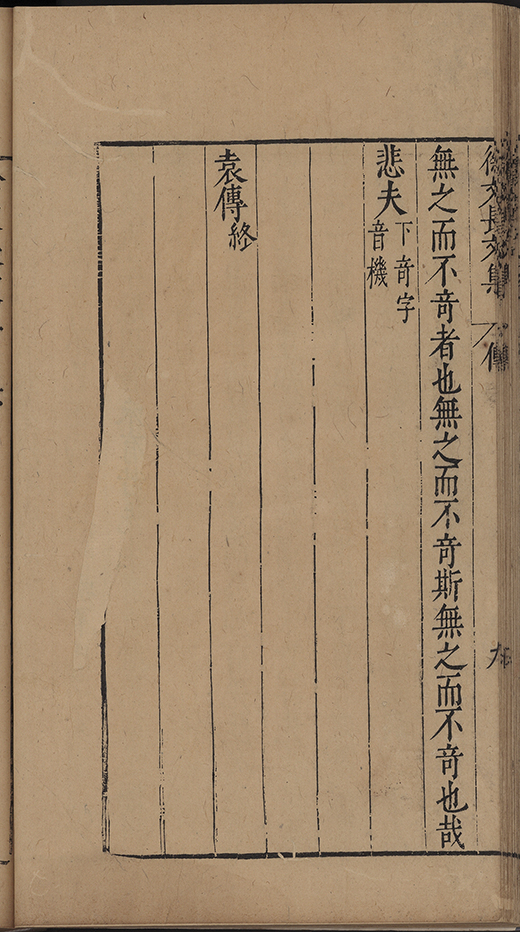 徐文長文集
傳
無之而不奇者也無之而不奇斯無之而不奇也哉
悲夫
下奇字
音機
袁傳終